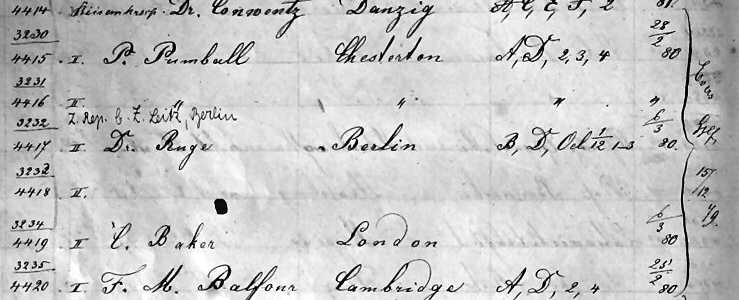 4414 Dr. Conwentz Danzig A, C, E, F, 2 81.
3230 28/2
4415 I. P. Pumball Chesterton A, D, 2, 3, 4 80
3231
4416 II " " " "
3232 Z. Rep. C. Z. Leitz, Berlin 6/3
4417 II Dr. Ruge Berlin B, D, Ocl 1/12 1-3 80.
3233 15/
4418 II. 12
3234 6/3 /9.
4419 II C. Baker London 80
3235 25/2
4420 I F. M. Balfour Cambridge A, D, 2, 4 80